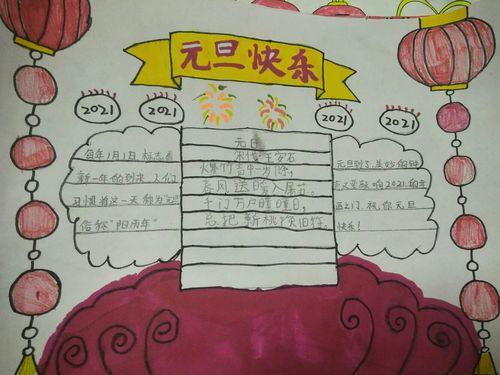 元旦快乐
2021
2021
2021
2021
每年1月1日标志着
新一年的到来,人们
习惯将这一天称为"元旦
俗称"阳历年"
元日
宋代 王安石
爆竹声中一岁除,
春风送暖入屠苏。
千门万户曈曈日,
总把新桃换旧符。
元旦到了,美妙的钟
声敲响2021的幸
福之门,祝你元旦
快乐!